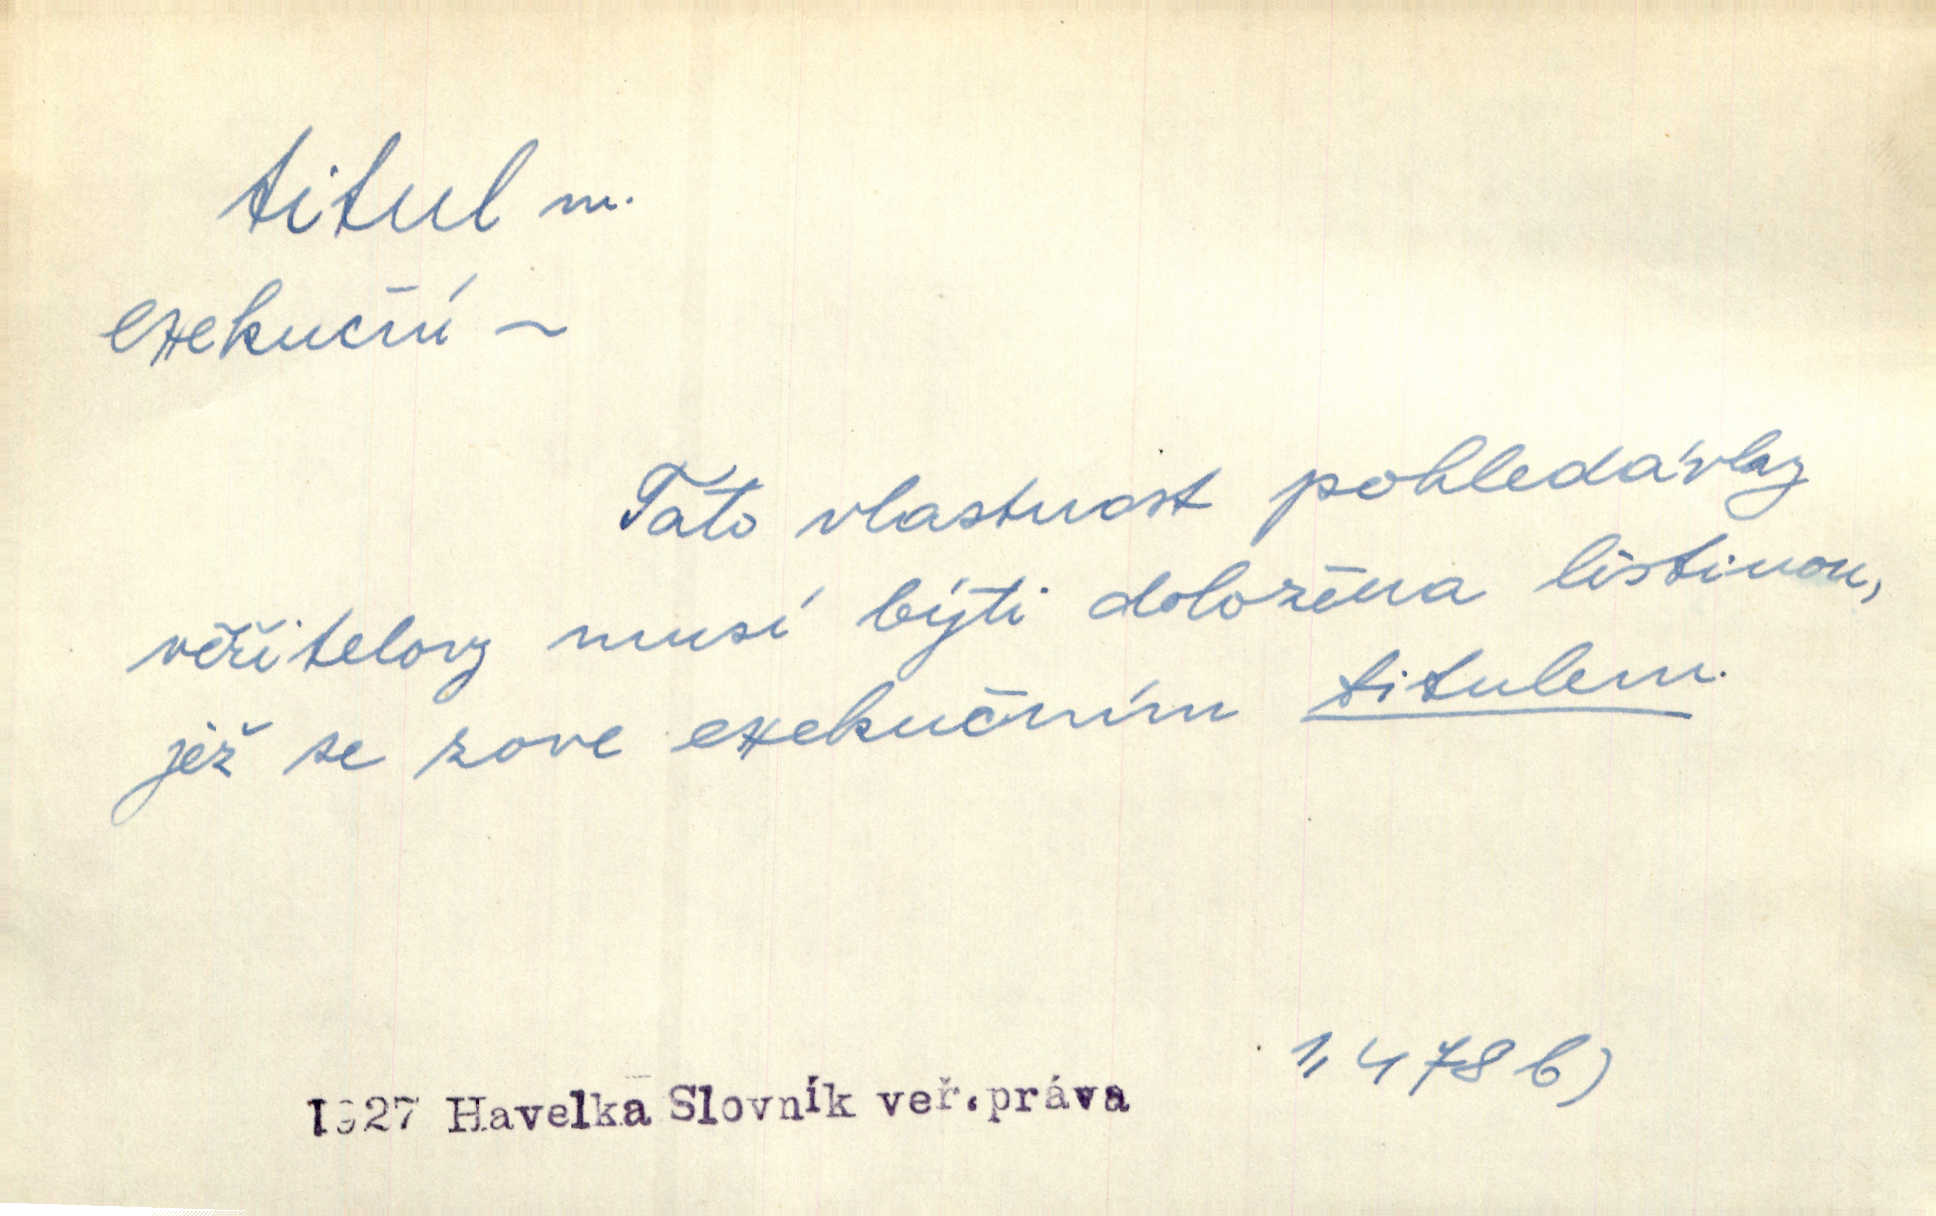 titul m.
exekuční ~
Tato vlastnost pohledávky
věřitelovy musí býti doložena listinou,
jež se zove exekučním titulem.
1, 478 b)
1927 Havelka Slovník veř.práva